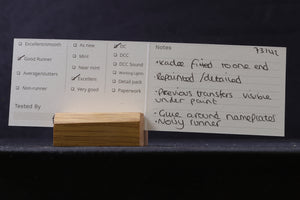 Excellent/smooth
Good Runner
Average/stutters
Non-runner
Tested By
As new
Mint
Near mint
Excellent
Very good
DC
DCC
DCC Sound
Working Lights
Detail pack
Paperwork
Notes
•Kadee fitted to one end
•Repainted /detailed
•Previous transfers visible
under paint
•Glue around nameplates
•Noisy runner